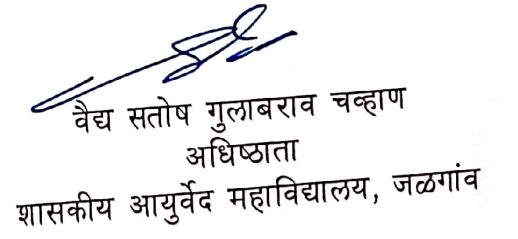 वैद्य सतोष गुलाबराव चव्हाण
अधिष्ठाता
शासकीय आयुर्वेद महाविद्यालय, जळगांव